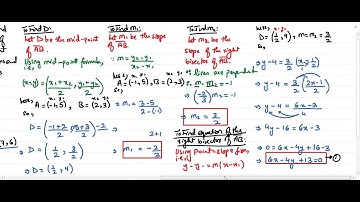 To Find D:
Let D be the mid-point
of AB.
Using mid-point formula,
i.e.,
(x,y) = (x₁+x₂/2, y₁+y₂/2)
A = (-1,5), B = (2,3)
D = (-1+2/2, 5+3/2)
⇒ D = (1/2, 8/2)
⇒ D = (1/2, 4)
To Find m₁:
Let m₁ be the slope
of AB.
∴ m = y₂-y₁/x₂-x₁
A = (-1,5), B = (2,3)
⇒ m₁ = 3-5
2+1
⇒ m₁ = -2/3
To Find m₂:
Let m₂ be the
slope of the right
bisector of AB.
∵ lines are perpendi
∴ m₁ m₂ = -1
(-2/3) m₂ = -1
⇒ m₂ = 3/2
To Find equation of the
right bisector of AB:
Using point-slope form,
i.e.,
y-y₁ = m(x-x₁)
D = (1/2, 4), m₂ = 3/2
y-4 = 3/2 (x-1/2)
⇒ y-4 = 3/2 (2x-1/2)
⇒ y-4 = 6x-3/4
⇒ 4y-16 = 6x-3
⇒ 0 = 6x-4y+16-3
⇒ 6x-4y+13=0